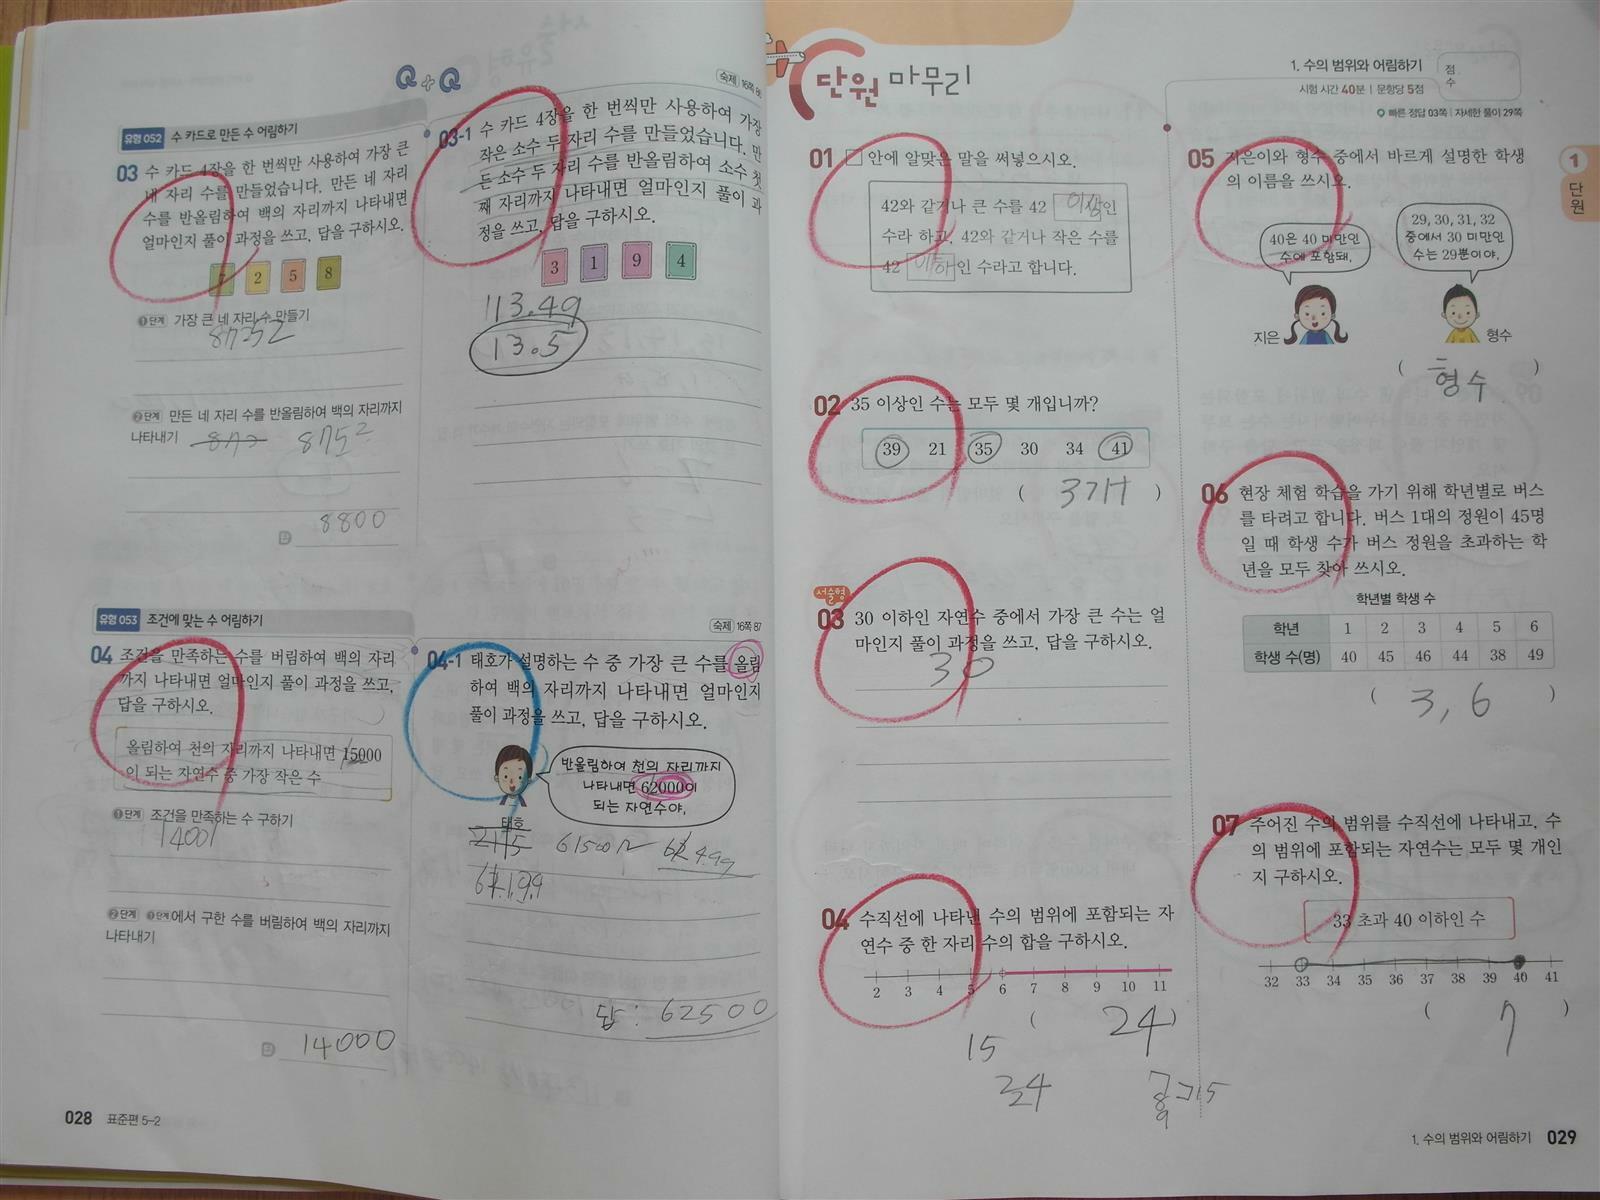 Q+Q
유형 052 수 카드로 만든 수 어림하기
03 수 카드 4장을 한 번씩만 사용하여 가장 큰
네 자리 수를 만들었습니다. 만든 네 자리
수를 반올림하여 백의 자리까지 나타내면
얼마인지 풀이 과정을 쓰고, 답을 구하시오.
7 2 5 8
❶단계 가장 큰 네 자리 수 만들기
8752
❷단계 만든 네 자리 수를 반올림하여 백의 자리까지
나타내기 8752
답 8800
숙제 16쪽 86
03-1 수 카드 4장을 한 번씩만 사용하여 가장
작은 소수 두 자리 수를 만들었습니다. 만
든 소수 두 자리 수를 반올림하여 소수 첫
째 자리까지 나타내면 얼마인지 풀이 과
정을 쓰고, 답을 구하시오.
3 1 9 4
13.49
13.5
유형 053 조건에 맞는 수 어림하기
04 조건을 만족하는 수를 버림하여 백의 자리
까지 나타내면 얼마인지 풀이 과정을 쓰고,
답을 구하시오.
올림하여 천의 자리까지 나타내면 15000
이 되는 자연수 중 가장 작은 수
❶단계 조건을 만족하는 수 구하기
14001
❷단계 ❶단계에서 구한 수를 버림하여 백의 자리까지
나타내기
답 14000
숙제 16쪽 87
04-1 태호가 설명하는 수 중 가장 큰 수를 올림
하여 백의 자리까지 나타내면 얼마인지
풀이 과정을 쓰고, 답을 구하시오.
반올림하여 천의 자리까지
나타내면 62000이
되는 자연수야.
태호
61500
답 : 62500
028 표준편 5-2
단원 마무리
1. 수의 범위와 어림하기
점수
시험 시간 40분 | 문항당 5점
빠른 정답 03쪽 | 자세한 풀이 29쪽
1
단원
01 □ 안에 알맞은 말을 써넣으시오.
42와 같거나 큰 수를 42 이상인
수라 하고, 42와 같거나 작은 수를
42 이하인 수라고 합니다.
02 35 이상인 수는 모두 몇 개입니까?
39 21 35 30 34 41
( 3개 )
서술형
03 30 이하인 자연수 중에서 가장 큰 수는 얼
마인지 풀이 과정을 쓰고, 답을 구하시오.
30
04 수직선에 나타낸 수의 범위에 포함되는 자
연수 중 한 자리 수의 합을 구하시오.
2 3 4 5 6 7 8 9 10 11
( 24 )
15
24
05 지은이와 형수 중에서 바르게 설명한 학생
의 이름을 쓰시오.
40은 40 미만인
수에 포함돼.
29, 30, 31, 32
중에서 30 미만인
수는 29뿐이야.
지은 형수
( 형수 )
06 현장 체험 학습을 가기 위해 학년별로 버스
를 타려고 합니다. 버스 1대의 정원이 45명
일 때 학생 수가 버스 정원을 초과하는 학
년을 모두 찾아 쓰시오.
학년별 학생 수
학년 1 2 3 4 5 6
학생 수(명) 40 45 46 44 38 49
( 3, 6 )
07 주어진 수의 범위를 수직선에 나타내고, 수
의 범위에 포함되는 자연수는 모두 몇 개인
지 구하시오.
33 초과 40 이하인 수
32 33 34 35 36 37 38 39 40 41
( 7 )
1. 수의 범위와 어림하기 029